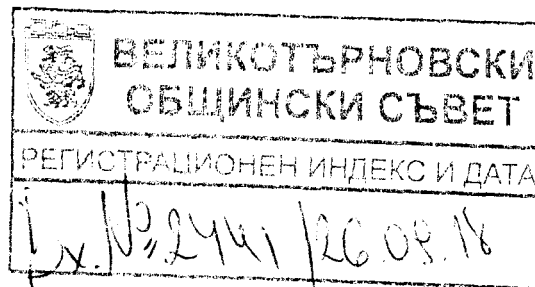 ВЕЛИКОТЪРНОВСКИ
ОБЩИНСКИ СЪВЕТ
РЕГИСТРАЦИОНЕН ИНДЕКС И ДАТА
Вх. № 2441 / 26.09.18